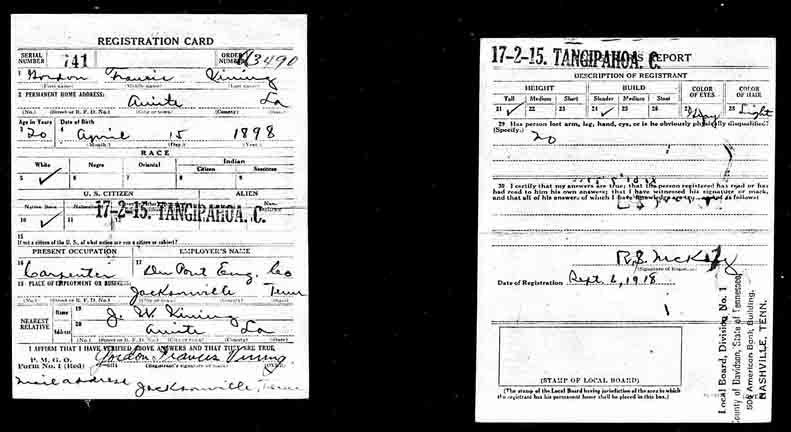 REGISTRATION CARD
SERIAL NUMBER 741 ORDER NUMBER 3490
1 Gordon Francis Vining
(First name) (Middle name) (Last name)
2 PERMANENT HOME ADDRESS:
Amite La
(No.) (Street or R. F. D. No.) (City or town) (County) (State)
Age in Years Date of Birth
20 April 15 1898
(Month.) (Day.) (Year.)
RACE
White Negro Oriental Indian
Citizen Noncitizen
5 ✓ 6 7 8 9
U. S. CITIZEN ALIEN
Native Born
10 ✓ 11
17-2-15. TANGIPAHOA. C.
15
If not a citizen of the U. S., of what nation are you a citizen or subject?
PRESENT OCCUPATION EMPLOYER'S NAME
16 Carpenter 17 Du Pont Eng. Co
18 PLACE OF EMPLOYMENT OR BUSINESS:
Jacksonville Tenn
(No.) (Street or R. F. D. No.) (City or town) (County) (State)
NEAREST RELATIVE Name 19 J. W. Vining
Address 20 Amite La
(No.) (Street or R. F. D. No.) (City or town) (County) (State)
I AFFIRM THAT I HAVE VERIFIED ABOVE ANSWERS AND THAT THEY ARE TRUE
P. M. G. O.
Form No. 1 (Red) Gordon Francis Vining
(Registrant's signature or mark) (OVER)
Mail address Jacksonville, Tenn
17-2-15. TANGIPAHOA. C. REPORT
DESCRIPTION OF REGISTRANT
HEIGHT BUILD COLOR OF EYES COLOR OF HAIR
Tall Medium Short Slender Medium Stout
21 ✓ 22 23 24 ✓ 25 26 27 Gray 28 Light
29 Has person lost arm, leg, hand, eye, or is he obviously physically disqualified?
(Specify.)
30 I certify that my answers are true; that the person registered has read or has
had read to him his own answers; that I have witnessed his signature or mark,
and that all of his answers of which I have knowledge are true, except as follows:
R. S. McKay
(Signature of Registrar)
Date of Registration Sept. 6, 1918
Local Board, Division No. 1
County of Davidson, State of Tennessee
508 American Bank Building,
NASHVILLE, TENN.
(STAMP OF LOCAL BOARD)
(The stamp of the Local Board having jurisdiction of the area in which
the registrant has his permanent home shall be placed in this box.)